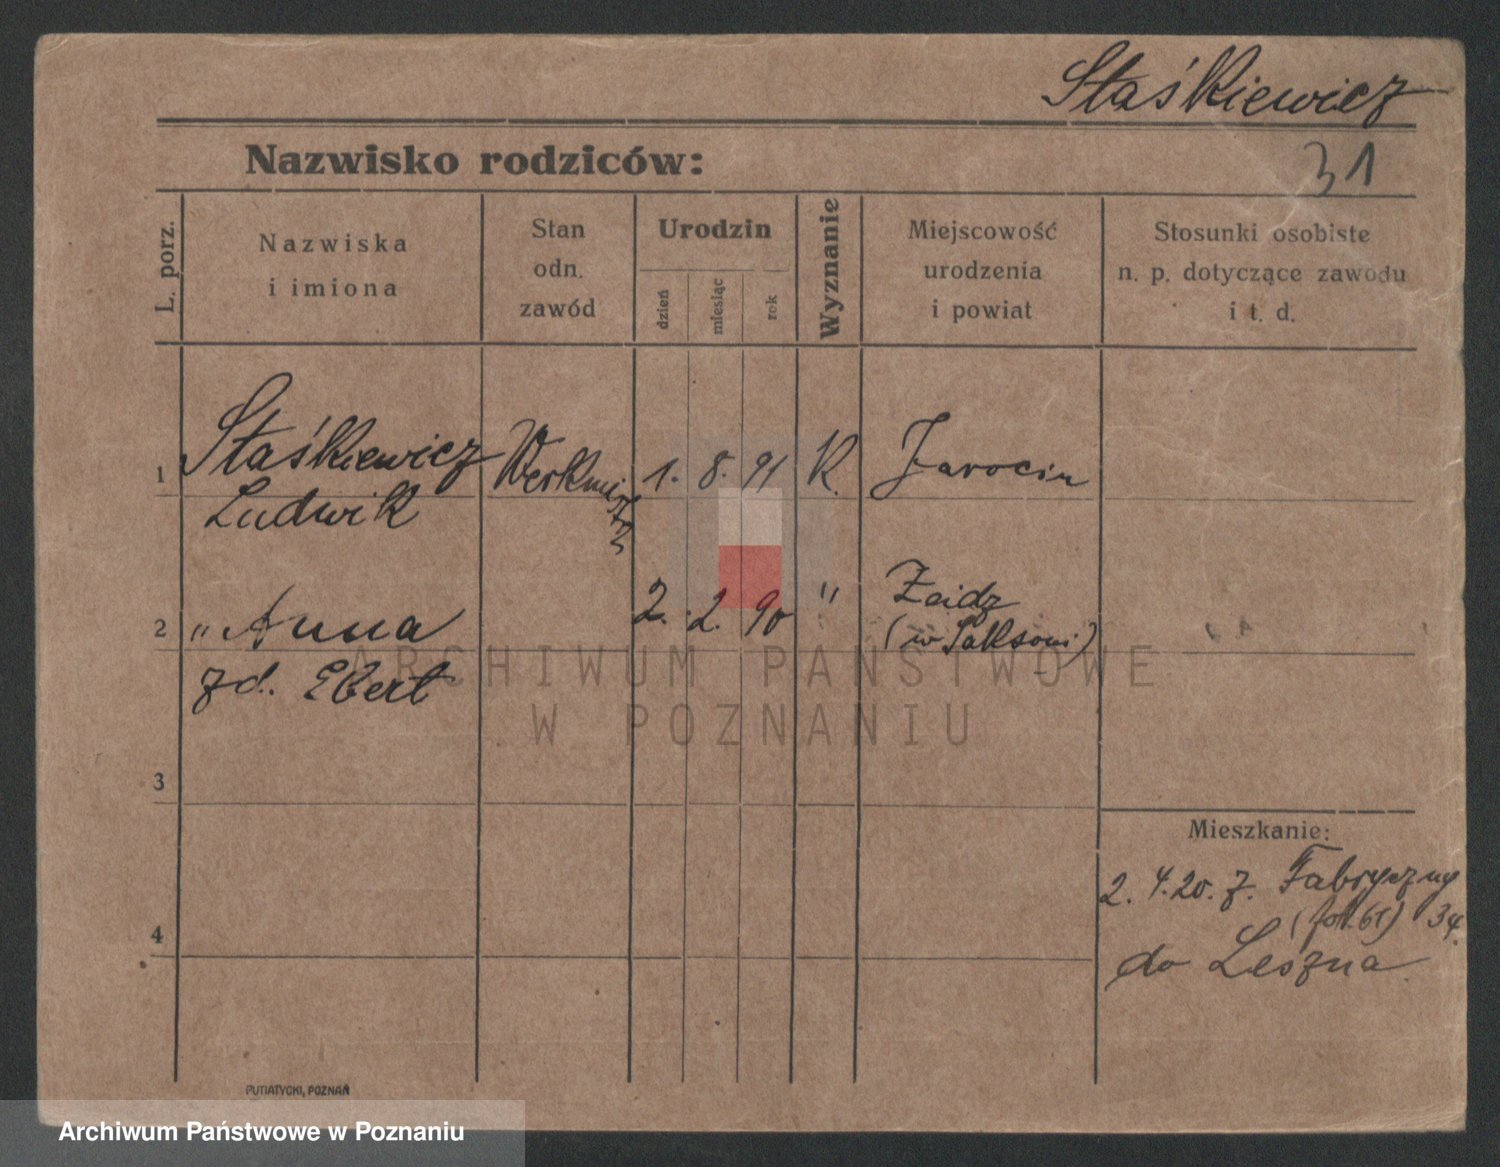 Staśkiewicz
31
Nazwisko rodziców:
L. porz.
Nazwiska
i imiona
Stan
odn.
zawód
Urodzin
dzień
miesiąc
rok
Wyznanie
Miejscowość
urodzenia
i powiat
Stosunki osobiste
n. p. dotyczące zawodu
i t. d.
1 Staśkiewicz Werkmistrz 1. 8. 91 K. Jarocin
Ludwik
2 " Anna 2. 2. 90 " Zeidz
(w Saksoni)
zd. Ebert
ARCHIWUM PAŃSTWOWE
W POZNANIU
3
Mieszkanie:
2. 4. 20. z. Fabryczny
34.
4
do Leszna
PUTIATYCKI, POZNAŃ
Archiwum Państwowe w Poznaniu